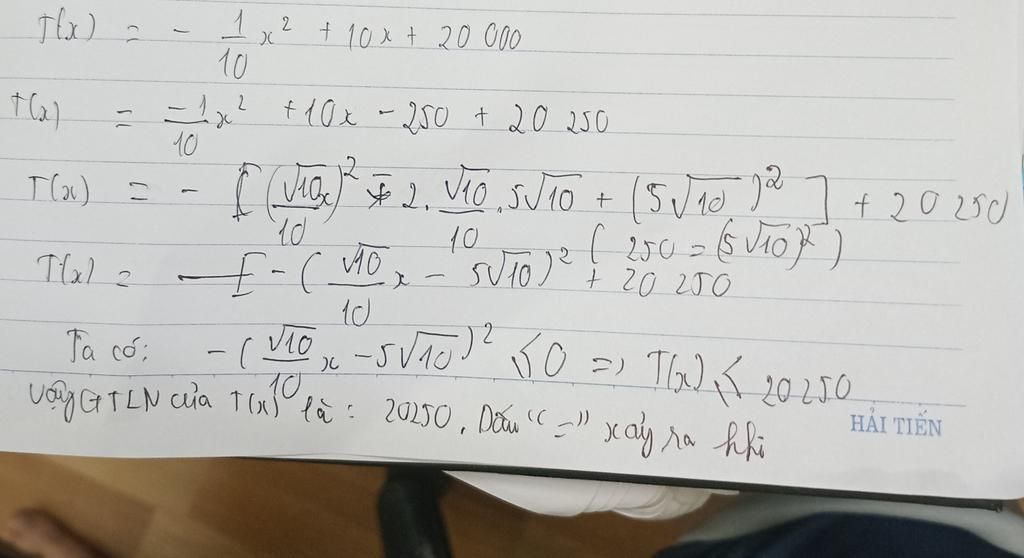 T(x) = - 1/10 x² + 10x + 20 000
T(x) = -1/10 x² + 10x - 250 + 20 250
T(x) = - [(√10x/10)² - 2. √10/10 . 5√10 + (5√10)²] + 20 250
( 250 = (5√10)² )
T(x) = - (√10/10 x - 5√10)² + 20 250
Ta có: - (√10/10 x - 5√10)² ≤ 0 => T(x) ≤ 20250
Vậy GTLN của T(x) là: 20250. Dấu "=" xảy ra khi
HẢI TIẾN